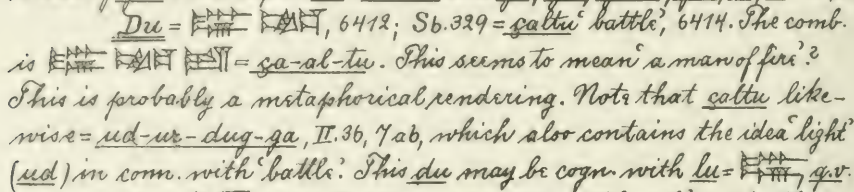 Du = , 6412; Sb. 329 = çaltu ‘battle’, 6414. The comb.
is = ça-al-tu. This seems to mean ‘a man of fire’?
This is probably a metaphorical rendering. Note that çaltu like-
wise = ud-ur-dug-ga, II. 36, 7ab, which also contains the idea ‘light’
(ud) in conn. with ‘battle’. This du may be cogn. with lu = , q.v.